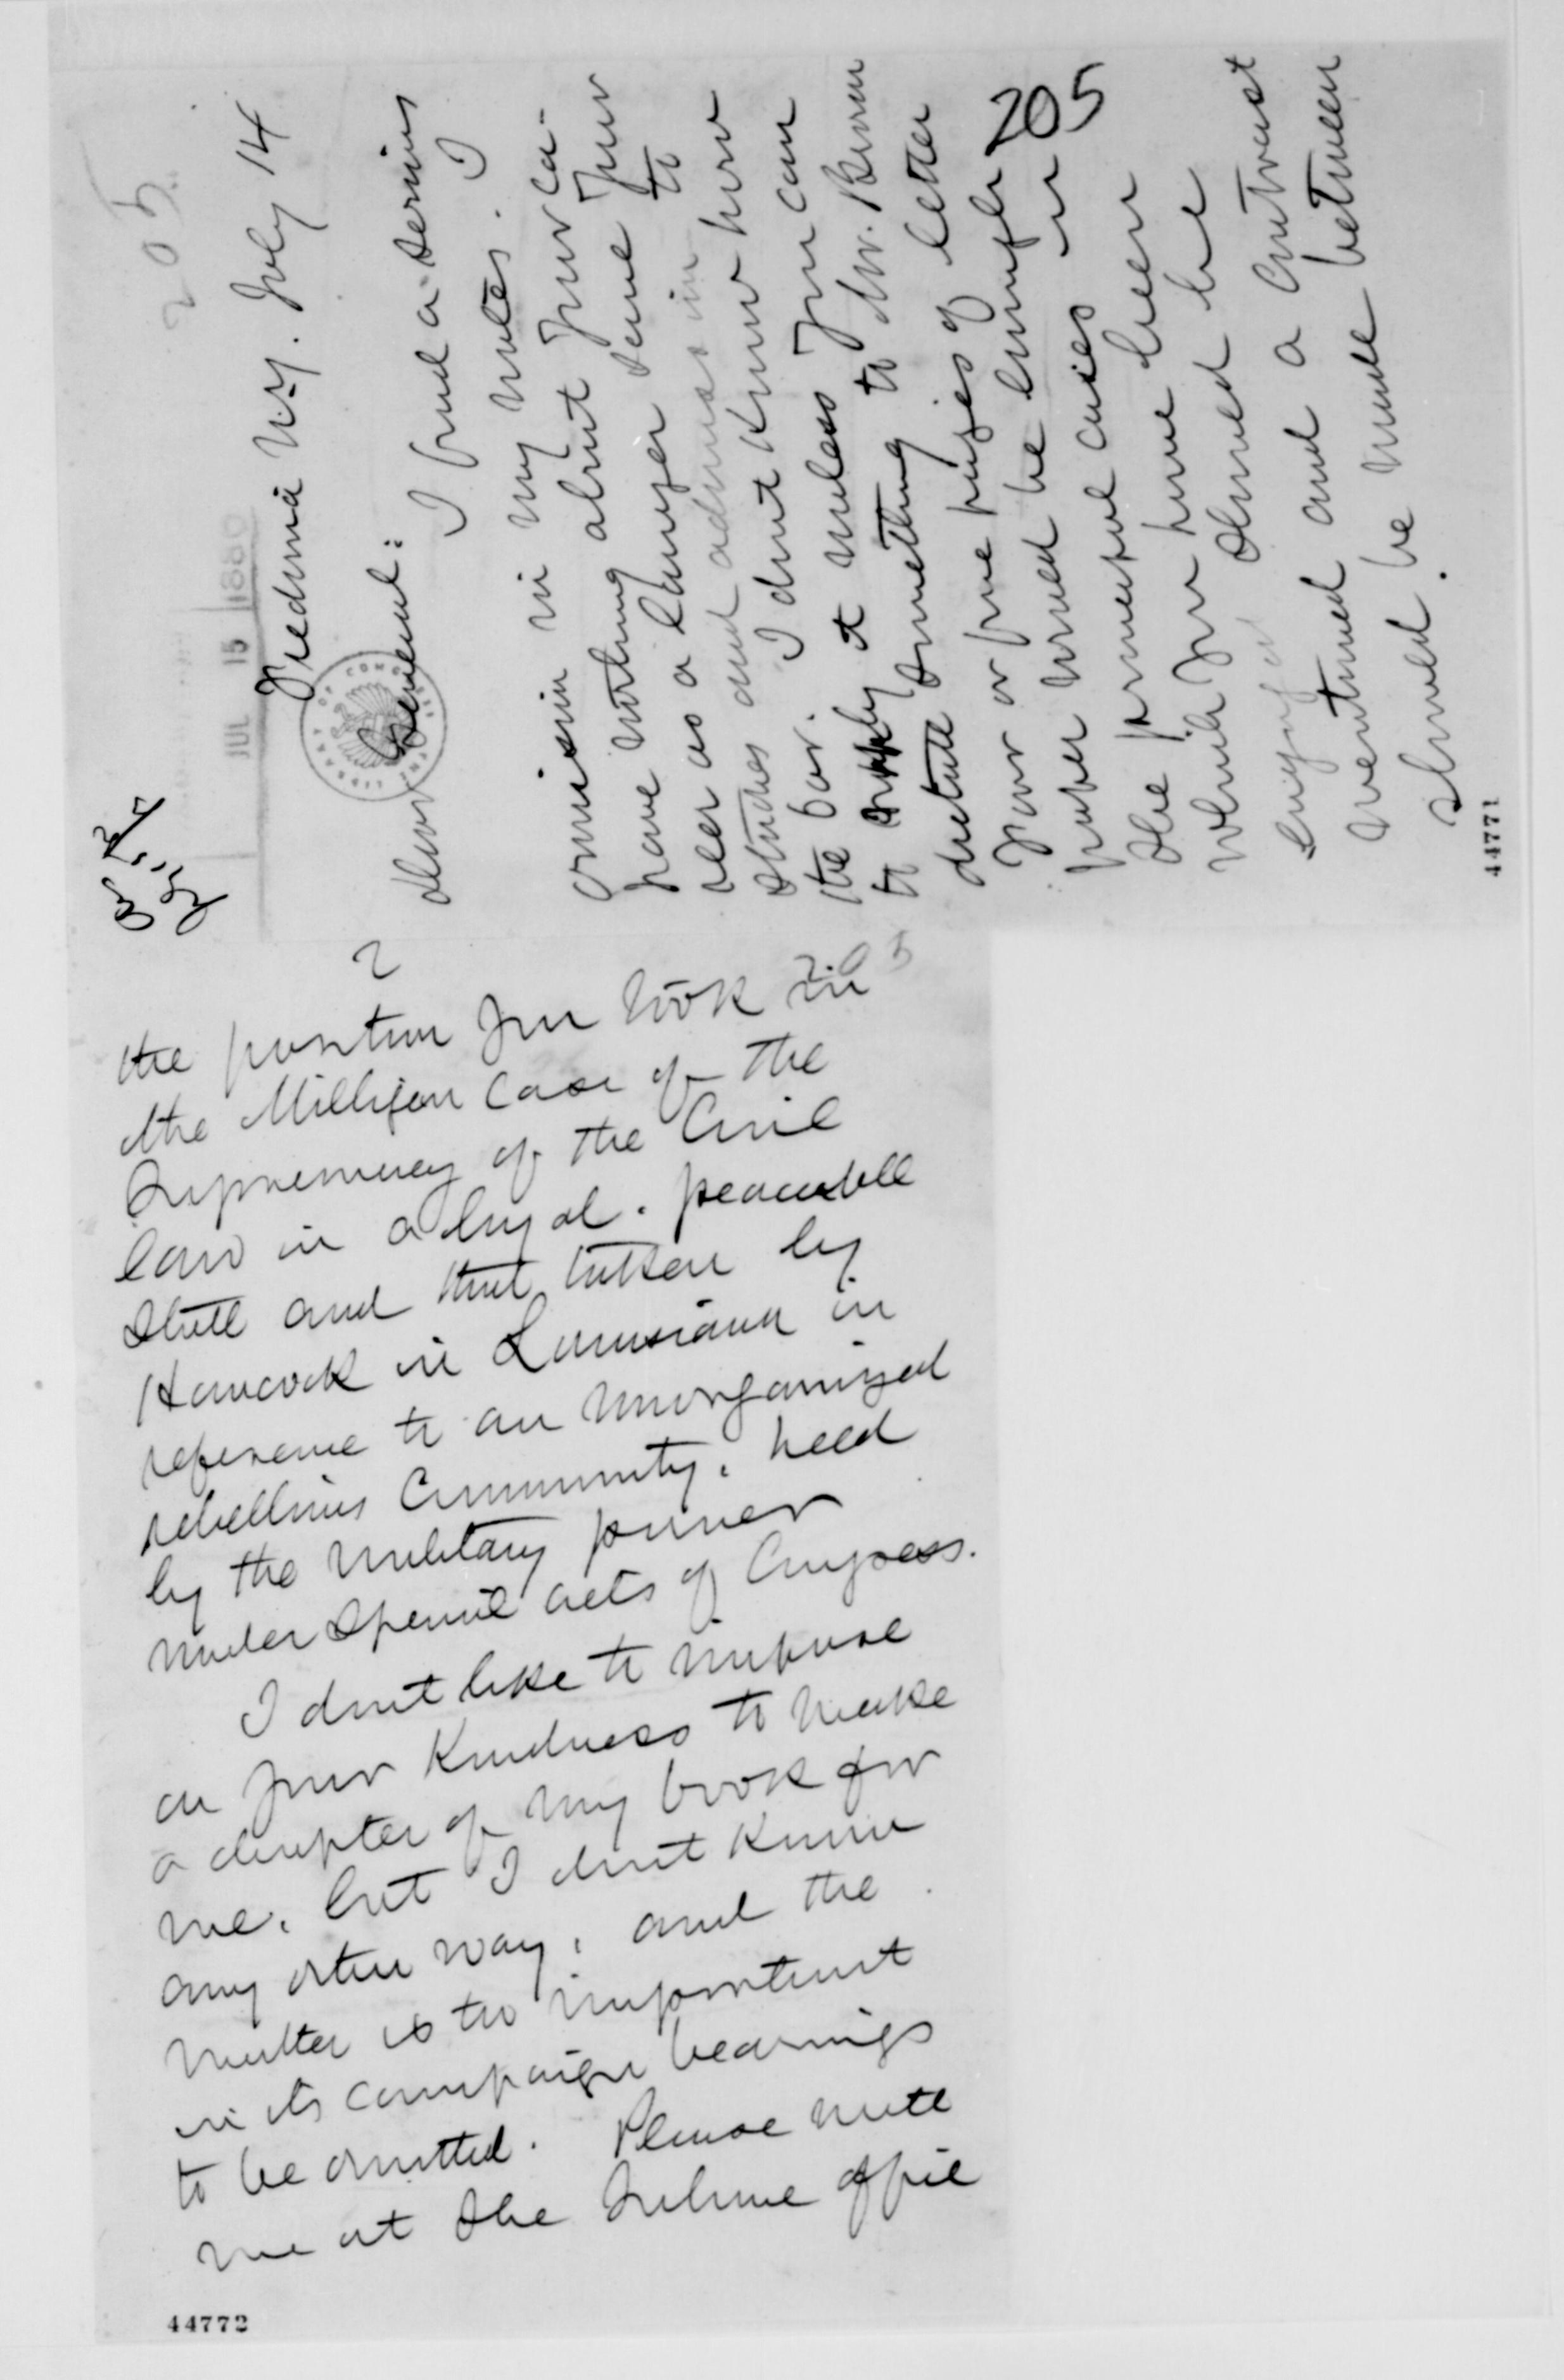 205
JUL 15 1880
Fredonia N.Y. July 14
Dear General:
I find a serious
omission in my notes. I
have nothing about your ca-
reer as a lawyer save your
studies and admission to
the bar. I dont know how
to supply it unless you can
dictate something to Mr. Brown
Four or five pages of letter
paper would be enough 205
The principal cases in
which you have been
engaged should be
mentioned and a contrast
should be made between
44771
2
205
the position you took in
the Milligan case of the
Supremacy of the Civil
law in a loyal, peaceable
State and that taken by
Hancock in Louisiana in
reference to an unorganized
rebellious Community, held
by the military power
under special acts of Congress.
I dont like to impose
on your kindness to make
a chapter of my book for
me, but I dont know
any other way, and the
matter is too important
in its campaign bearings
to be omitted. Please write
me at the Tribune office
44772